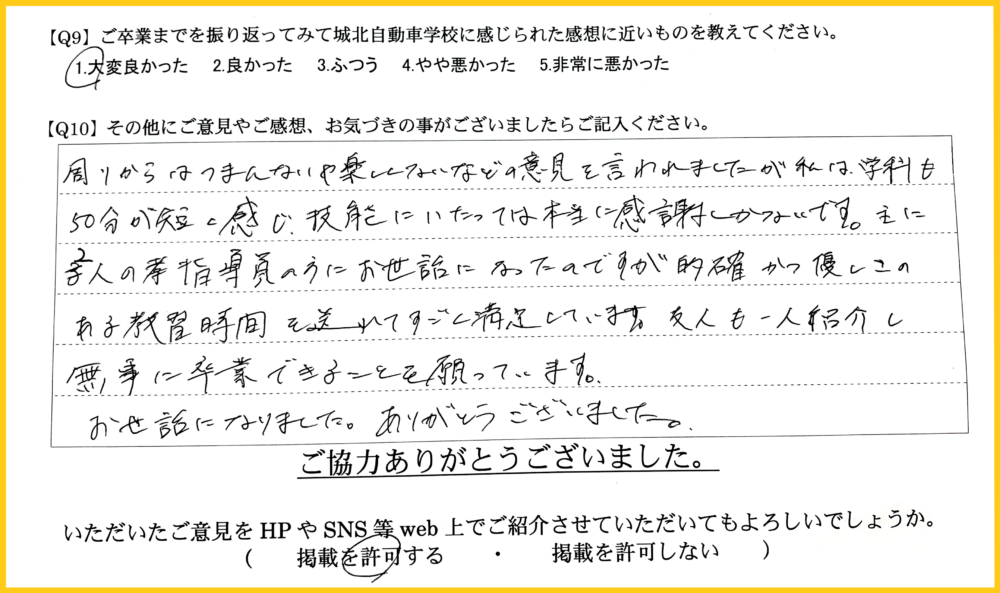 【Q9】ご卒業までを振り返ってみて城北自動車学校に感じられた感想に近いものを教えてください。
1.大変良かった 2.良かった 3.ふつう 4.やや悪かった 5.非常に悪かった
【Q10】その他にご意見やご感想、お気づきの事がございましたらご記入ください。
周りからはつまんないや楽しくないなどの意見を言われましたが私は、学科も
50分が短く感じ、技能にいたっては本当に感謝しかないです。主に
2人の 指導員の方にお世話になったのですが的確かつ優しさの
ある教習時間を送れてすごく満足しています。友人も一人紹介し
無事に卒業できることを願っています。
お世話になりました。ありがとうございました。
ご協力ありがとうございました。
いただいたご意見をHPやSNS等web上でご紹介させていただいてもよろしいでしょうか。
( 掲載を許可する ・ 掲載を許可しない )